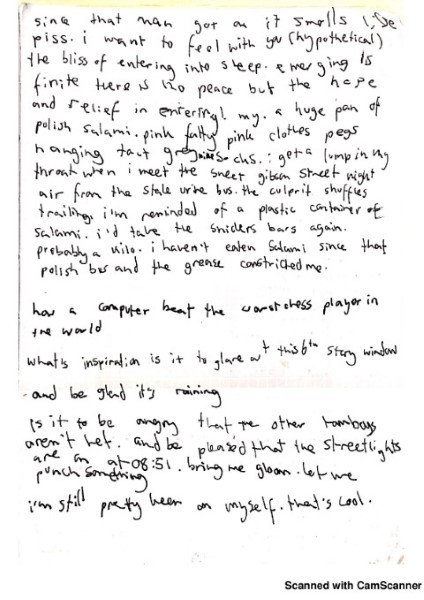 since that man got on it smells like
piss. i want to feel with you (hypothetical)
the bliss of entering into sleep. emerging is
finite there is no peace but the hope
and relief in entering! my. a huge pan of
polish salami. pink fatty pink clothes pegs
hanging taut. i get a lump in my
throat when i meet the sweet gibson street night
air from the stale urine bus. the culprit shuffles
trailing, i'm reminded of a plastic container of
salami. i'd take the sniders bars again.
probably a kilo. i haven't eaten salami since that
polish bus and the grease constricted me.
has a computer beat the worst chess player in
the world
what's inspiration is it to glare at this 6th story window
and be glad it's raining
is it to be angry that the other tomboys
aren't het. and be pleased that the streetlights
are on at 08:51. bring me gloom. let me
punch something
i'm still pretty keen on myself. that's cool.
Scanned with CamScanner